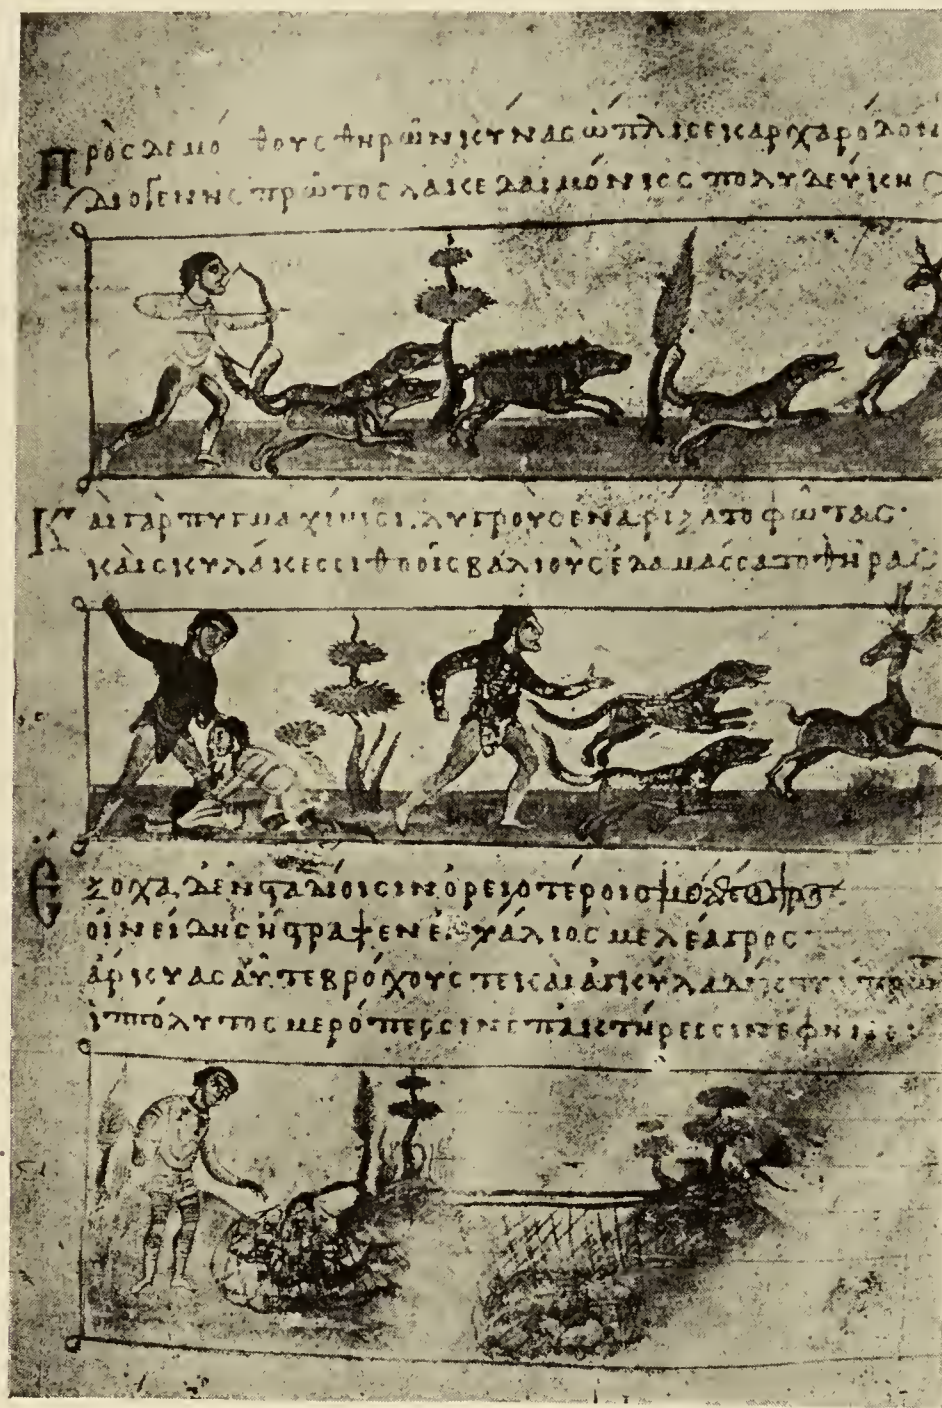 Πρὸς δὲ μόθους θηρῶν κύνας ὥπλισε καρχαρόδον
διογενὴς πρῶτος λακεδαιμόνιος πολυδεύκης
Καὶ γὰρ πυγμαχίησι λυγροὺς ἐναρίξατο φῶτας·
καὶ σκυλάκεσσι θοοῖς βαλιοὺς ἐδαμάσσατο θῆρας
Ἔξοχα δ' ἐν σταδίοισιν ὀρειοτέροισι
οἰνείδης ἤστραψεν ἐνυάλιος μελέαγρος
ἄρκυας αὖτε βρόχους τε καὶ ἀγκύλα δίκτυα πρῶ
ἱππόλυτος μερόπεσσιν ἐπακτήρεσσιν ἔφηνεν